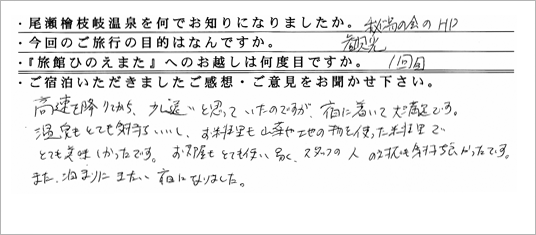 ・尾瀬檜枝岐温泉を何でお知りになりましたか。 秘湯の会のHP
・今回のご旅行の目的はなんですか。 観光
・『旅館ひのえまた』へのお越しは何度目ですか。 1回目
・ご宿泊いただきましたご感想・ご意見をお聞かせ下さい。
高速を降りてから、少し遠いと思っていたのですが、宿に着いて大満足です。
温泉もとても気持ちいいし、お料理も山菜や土地の物を使った料理で
とても美味しかったです。お部屋もとても使い易く、スタッフの人の対応も気持ち良かったです。
また、泊まりにきたい宿になりました。